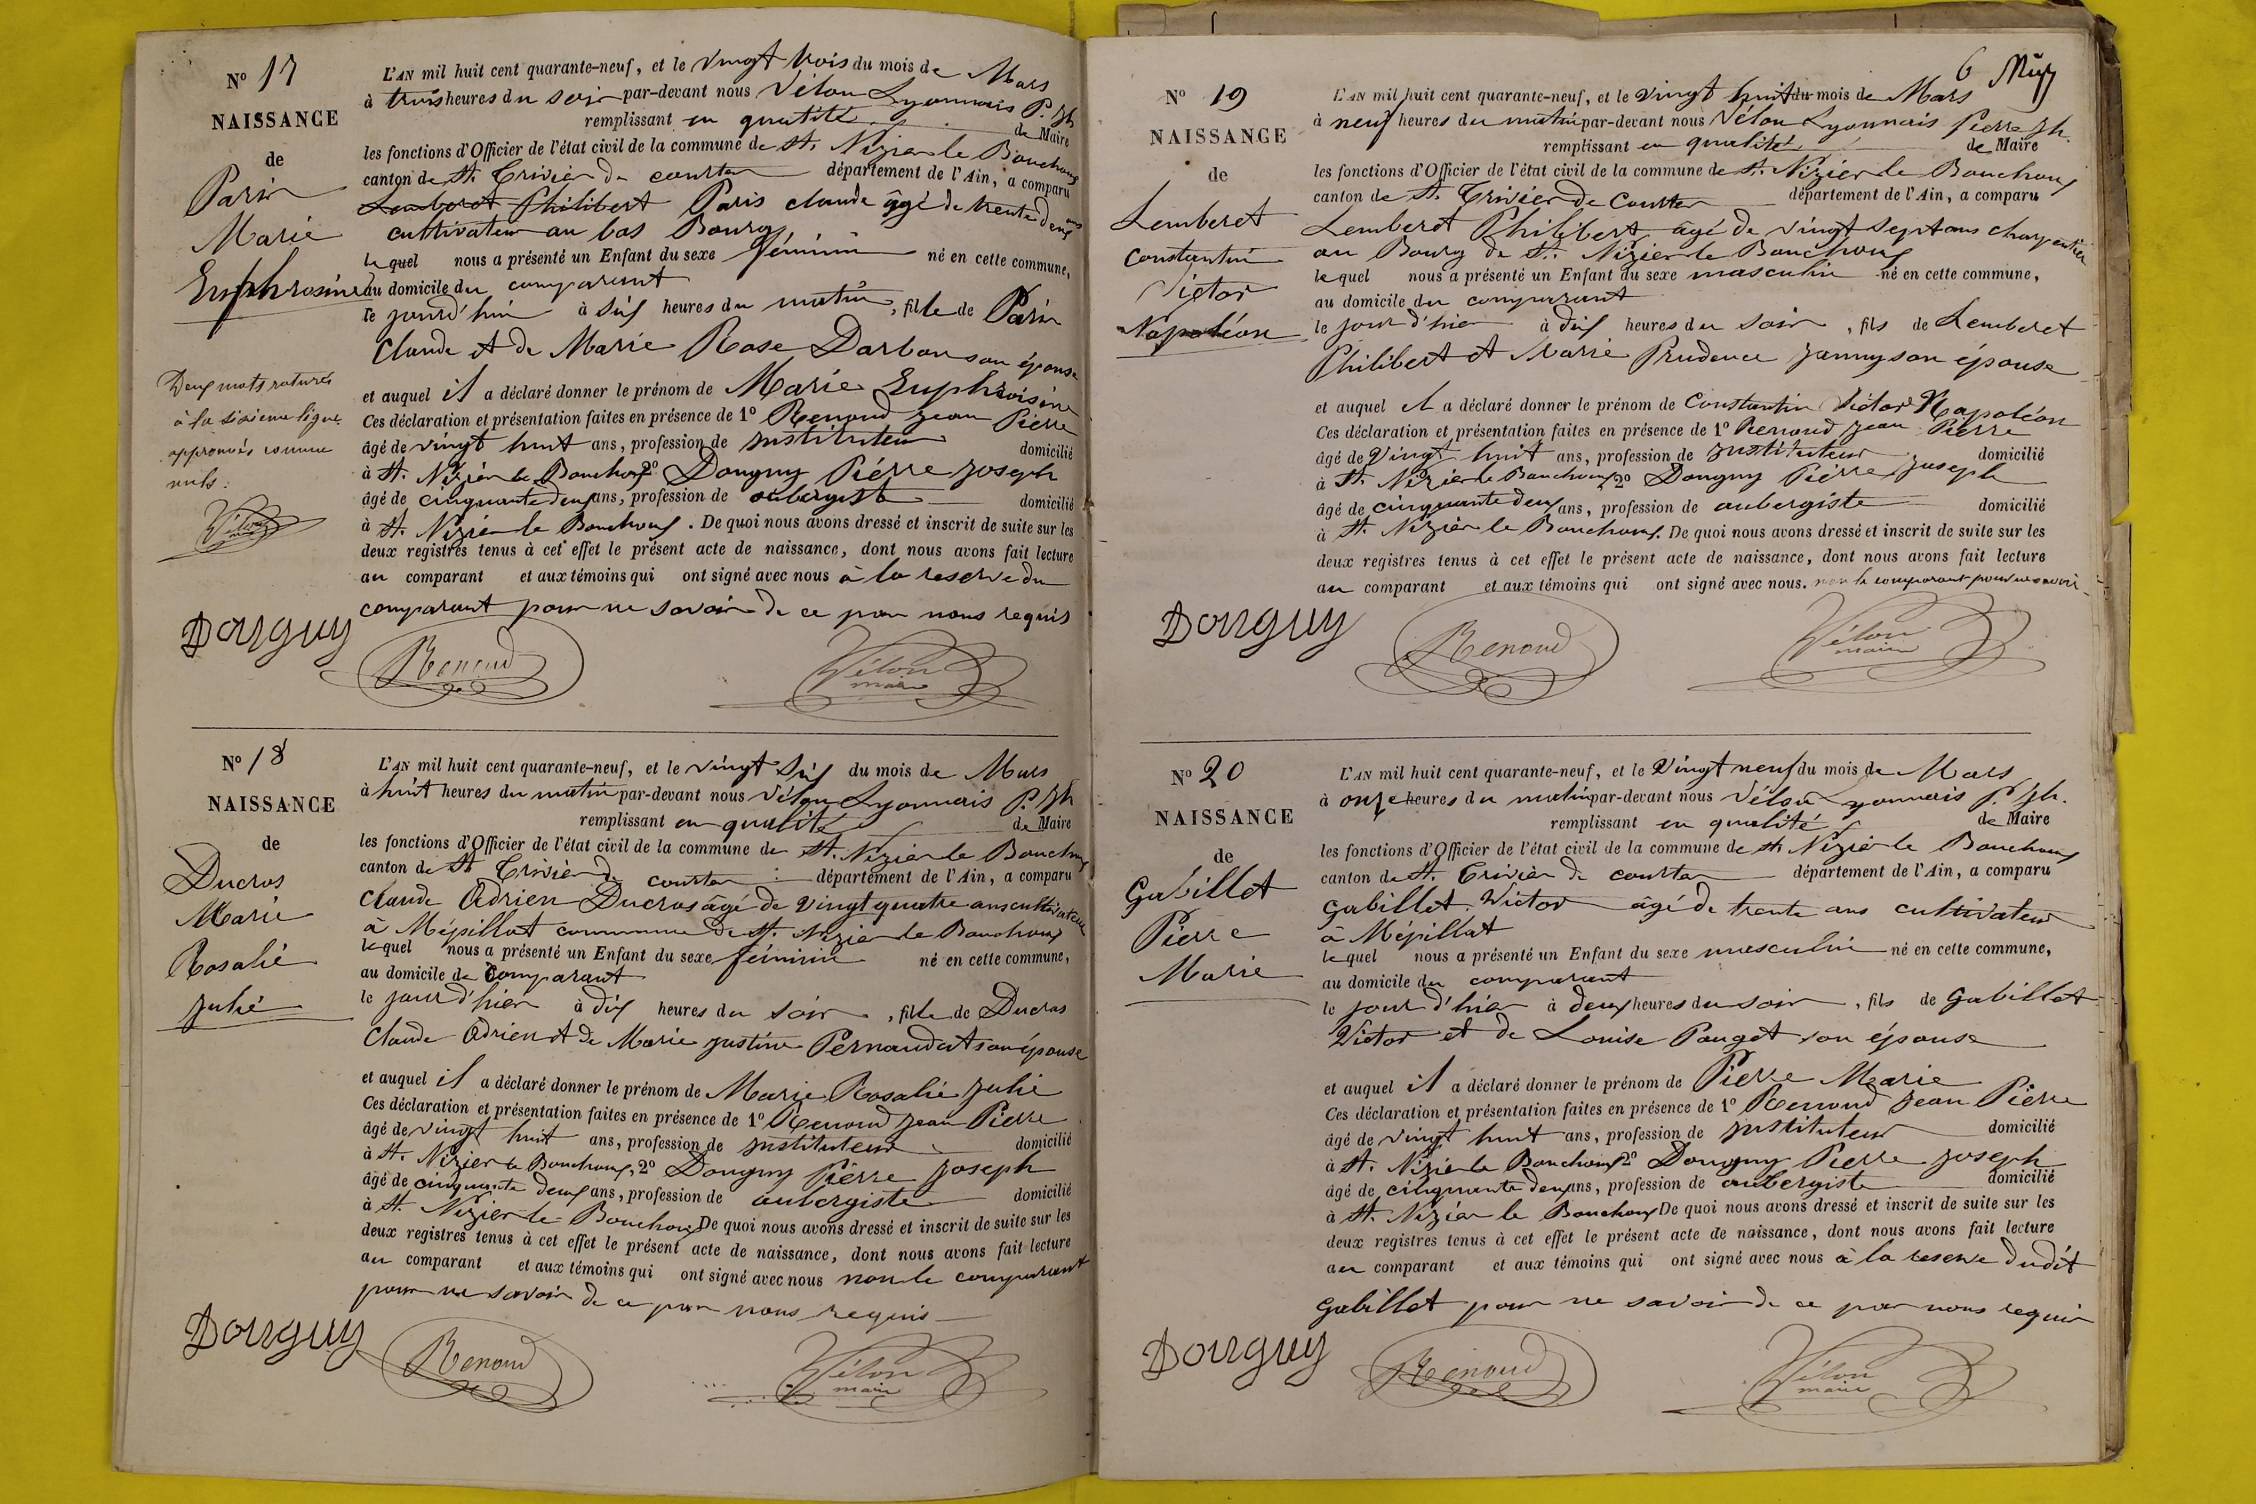 N° 17
NAISSANCE
de
Paris
Marie
Euphrosine
L'AN mil huit cent quarante-neuf, et le vingt trois du mois de Mars
à trois heures du soir par-devant nous Vélon Lyonnais P. Jh
remplissant en qualité de Maire
les fonctions d'Officier de l'état civil de la commune de St. Nizier le Bouchoux
canton de St. Trivier de courtes département de l'Ain, a comparu
Lemberet Philibert Paris claude âgé de trente deux ans
cultivateur au bas Bourg
lequel nous a présenté un Enfant du sexe féminin né en cette commune,
au domicile du comparant
le jourd'hui à six heures du matin, fille de Paris
Claude et de Marie Rose Darbon son épouse
et auquel il a déclaré donner le prénom de Marie Euphroisine
Ces déclaration et présentation faites en présence de 1° Renoud jean Pierre
âgé de vingt huit ans, profession de instituteur domicilié
à St. Nizier le Bouchoux 2° Douguy Pierre joseph
âgé de cinquante deux ans, profession de aubergiste domicilié
à St. Nizier le Bouchoux. De quoi nous avons dressé et inscrit de suite sur les
deux registres tenus à cet effet le présent acte de naissance, dont nous avons fait lecture
au comparant et aux témoins qui ont signé avec nous à la reserve du
comparant pour ne savoir de ce par nous requis
Deux mots raturés
à la sixieme ligne
approuvés comme
nuls.
Vélon
maire
Douguy Renoud Vélon
maire
N° 18
NAISSANCE
de
Ducros
Marie
Rosalie
Julie
L'AN mil huit cent quarante-neuf, et le vingt six du mois de Mars
à huit heures du matin par-devant nous Vélon Lyonnais P. Jh
remplissant en qualité de Maire
les fonctions d'Officier de l'état civil de la commune de St. Nizier le Bouchoux
canton de St Trivier de courtes département de l'Ain, a comparu
Claude Adrien Ducros âgé de vingt quatre ans cultivateur
à Mépillat commune de St. Nizier le Bouchoux
lequel nous a présenté un Enfant du sexe féminin né en cette commune,
au domicile de comparant
le jour d'hier à dix heures du soir, fille de Ducros
Claude Adrien et de Marie justine Pernaudat son épouse
et auquel il a déclaré donner le prénom de Marie Rosalie Julie
Ces déclaration et présentation faites en présence de 1° Renoud jean Pierre
âgé de vingt huit ans, profession de instituteur domicilié
à St. Nizier le Bouchoux, 2° Douguy Pierre joseph
âgé de cinquante deux ans, profession de aubergiste domicilié
à St. Nizier le Bouchoux De quoi nous avons dressé et inscrit de suite sur les
deux registres tenus à cet effet le présent acte de naissance, dont nous avons fait lecture
au comparant et aux témoins qui ont signé avec nous non le comparant
pour ne savoir de ce par nous requis
Douguy Renoud Vélon
maire
6
N° 19
NAISSANCE
de
Lemberet
Constantin
Victor
Napoléon
L'AN mil huit cent quarante-neuf, et le vingt huit du mois de Mars
à neuf heures du matin par-devant nous Vélon Lyonnais Pierre Jh.
remplissant en qualité de Maire
les fonctions d'Officier de l'état civil de la commune de St. Nizier le Bouchoux
canton de St. Trivier de Courtes département de l'Ain, a comparu
Lemberet Philibert âgé de vingt sept ans charpentier
au Bourg de St. Nizier le Bouchoux
lequel nous a présenté un Enfant du sexe masculin né en cette commune,
au domicile du comparant
le jour d'hier à dix heures du soir, fils de Lemberet
Philibert et Marie Prudence Janny son épouse
et auquel il a déclaré donner le prénom de Constantin Victor Napoléon
Ces déclaration et présentation faites en présence de 1° Renoud jean Pierre
âgé de Vingt huit ans, profession de instituteur domicilié
à St. Nizier le Bouchoux, 2° Douguy Pierre joseph
âgé de cinquante deux ans, profession de aubergiste domicilié
à St. Nizier le Bouchoux. De quoi nous avons dressé et inscrit de suite sur les
deux registres tenus à cet effet le présent acte de naissance, dont nous avons fait lecture
au comparant et aux témoins qui ont signé avec nous. non le comparant pour ne savoir
Douguy Renoud Vélon
maire
N° 20
NAISSANCE
de
Gabillet
Pierre
Marie
L'AN mil huit cent quarante-neuf, et le Vingt neuf du mois de Mars
à onze heures du matin par-devant nous Vélon Lyonnais P. Jh.
remplissant en qualité de Maire
les fonctions d'Officier de l'état civil de la commune de St Nizier le Bouchoux
canton de St. Trivier de courtes département de l'Ain, a comparu
Gabillet Victor âgé de trente ans cultivateur
à Mépillat
lequel nous a présenté un Enfant du sexe masculin né en cette commune,
au domicile du comparant
le jour d'hier à deux heures du soir, fils de Gabillet
Victor et de Louise Pauget son épouse
et auquel il a déclaré donner le prénom de Pierre Marie
Ces déclaration et présentation faites en présence de 1° Renoud Jean Pierre
âgé de vingt huit ans, profession de instituteur domicilié
à St. Nizier le Bouchoux 2° Douguy Pierre joseph
âgé de cinquante deux ans, profession de aubergiste domicilié
à St. Nizier le Bouchoux De quoi nous avons dressé et inscrit de suite sur les
deux registres tenus à cet effet le présent acte de naissance, dont nous avons fait lecture
au comparant et aux témoins qui ont signé avec nous à la reserve dudit
Gabillet pour ne savoir de ce par nous requis
Douguy Renoud Vélon
maire